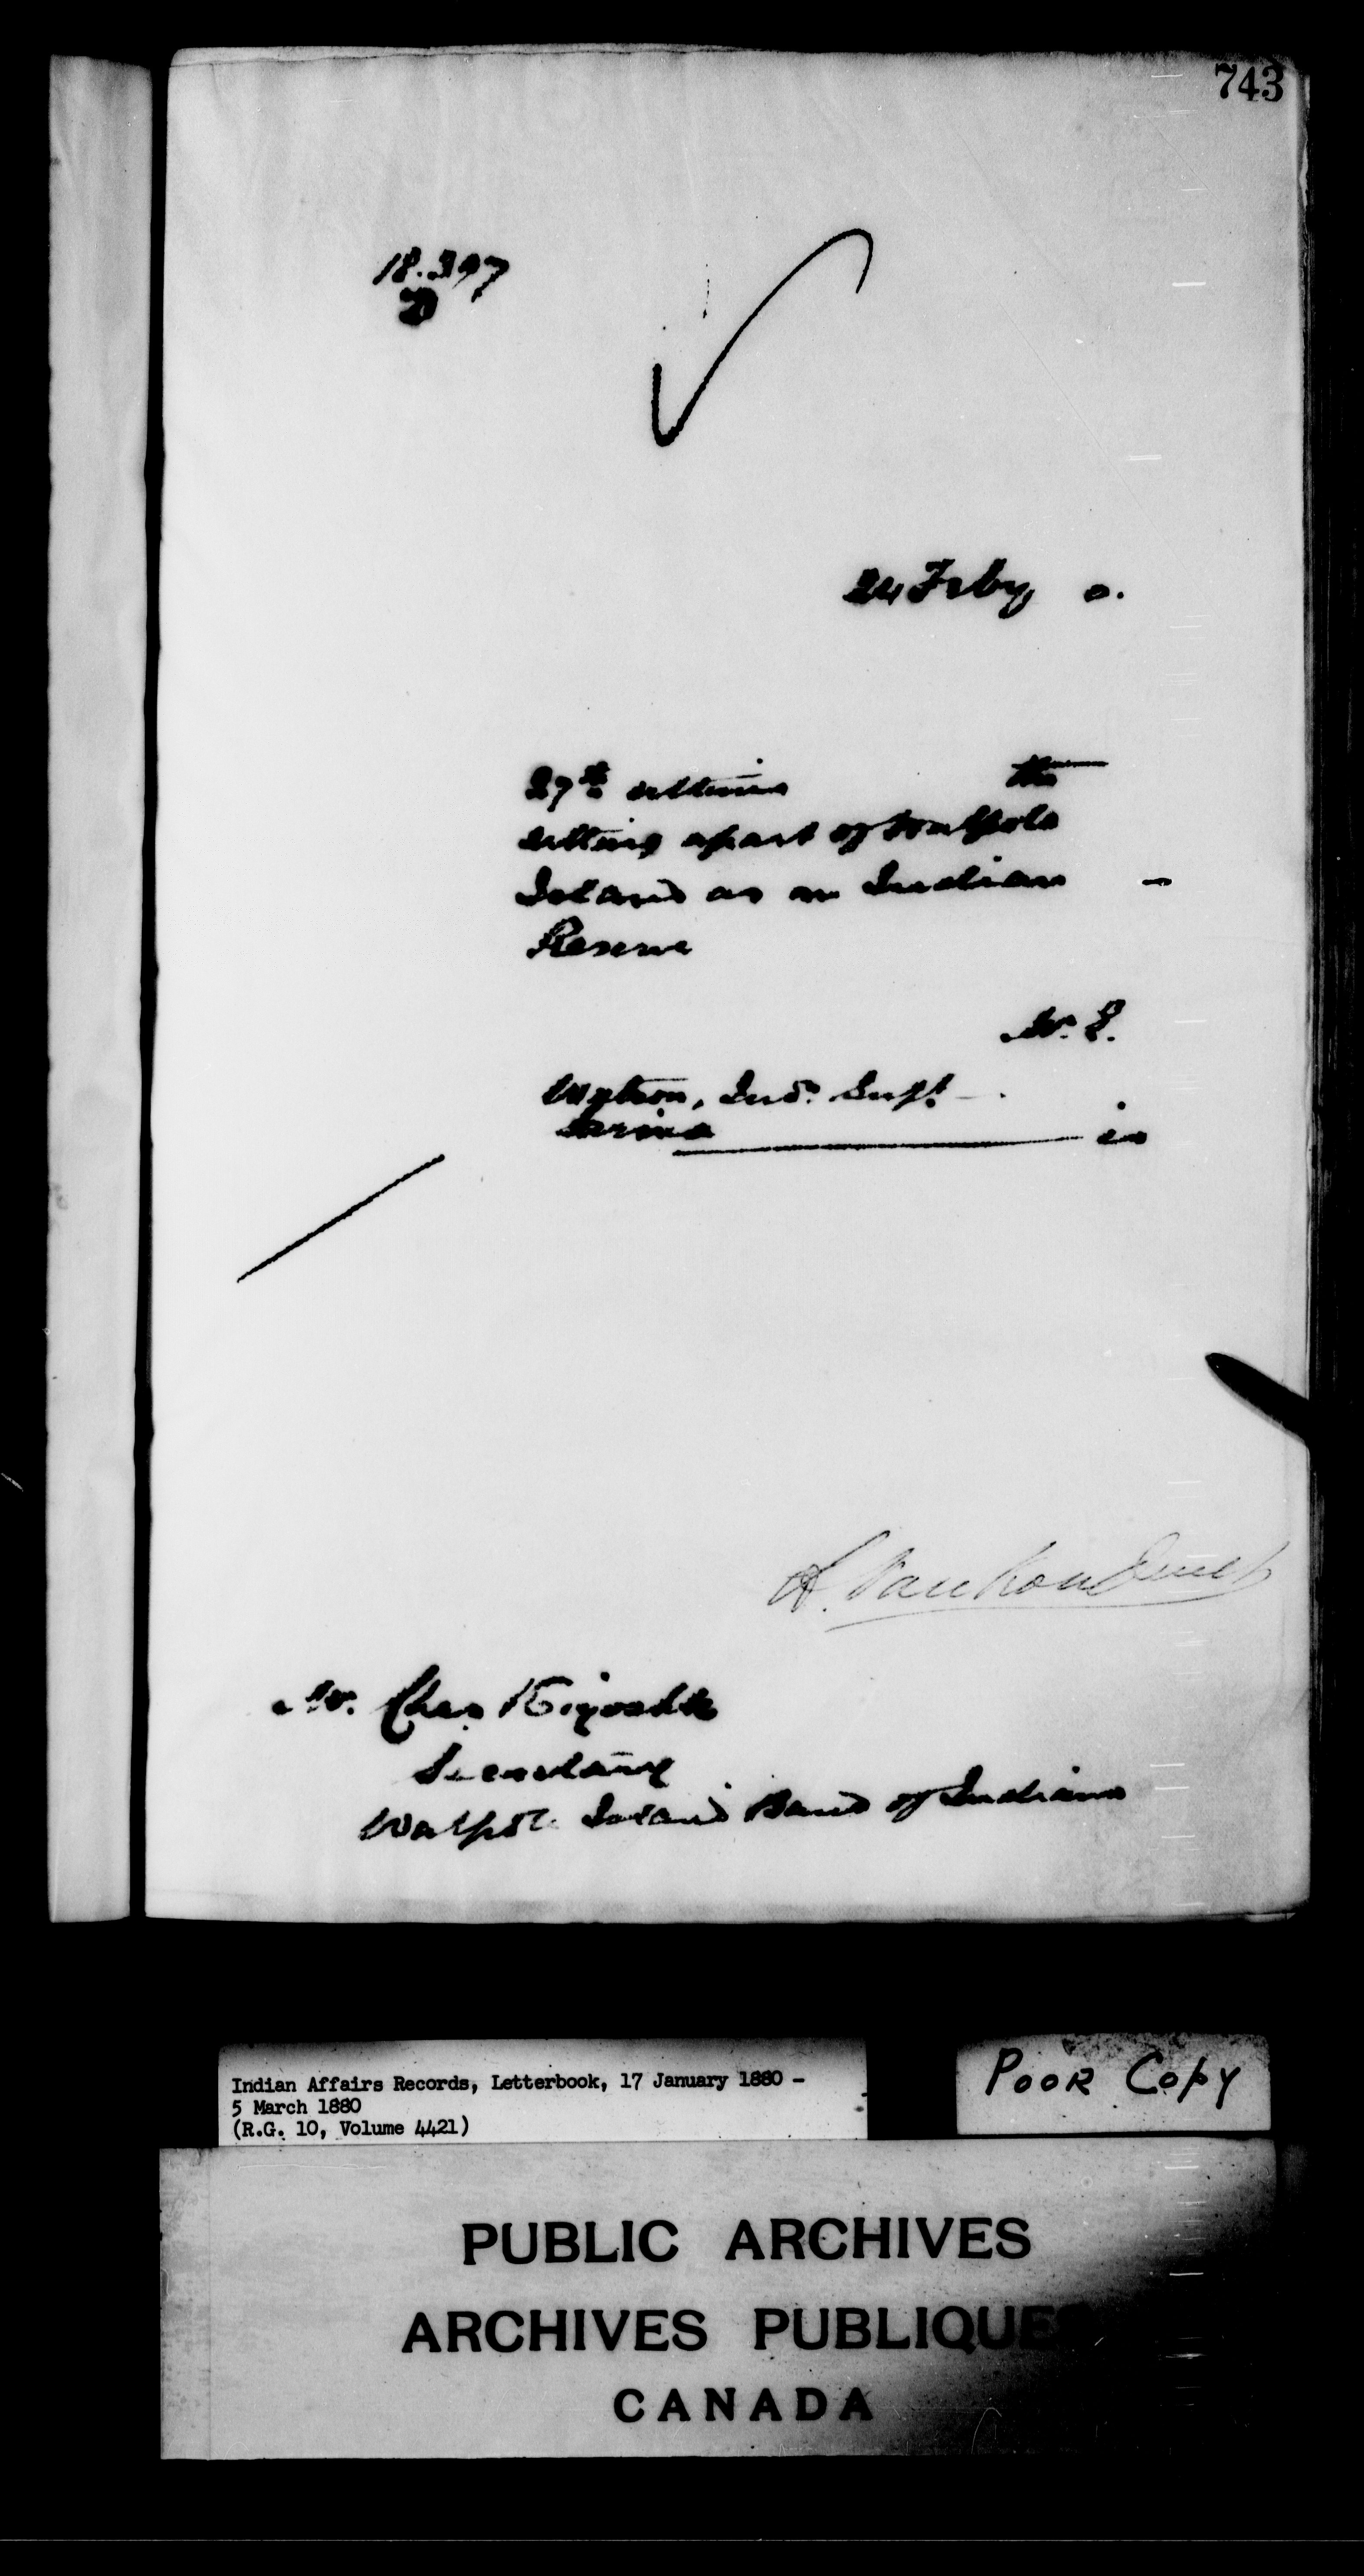 743
18.397
D
24 Feby 0.
27th ultimo the
setting apart of Walpole
Island as an Indian -
Reserve
Mr. E.
Watson, Ind. Supt.
Sarnia in
A. VanKoughnet
Mr. Chas
Secretary
Walpole Island Band of Indians
Indian Affairs Records, Letterbook, 17 January 1880 -
5 March 1880
(R.G. 10, Volume 4421)
POOR COPY
PUBLIC ARCHIVES
ARCHIVES PUBLIQUES
CANADA